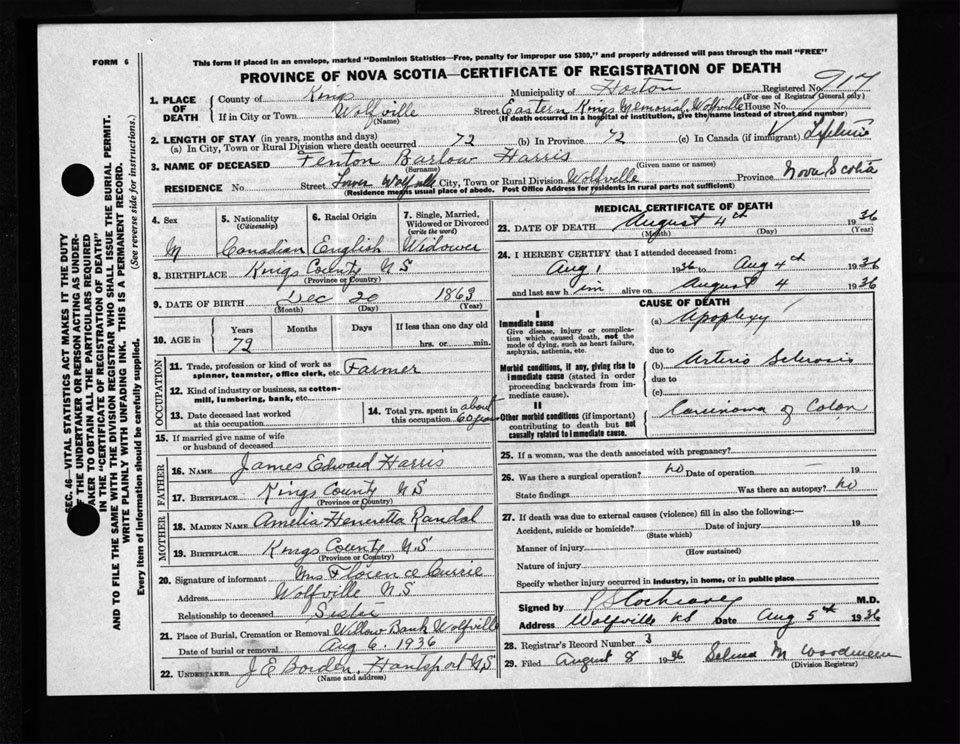 FORM 6
This form if placed in an envelope, marked "Dominion Statistics—Free, penalty for improper use $300," and properly addressed will pass through the mail "FREE"
PROVINCE OF NOVA SCOTIA—CERTIFICATE OF REGISTRATION OF DEATH
Registered No. 917
(For use of Registrar General only)
1. PLACE OF DEATH
County of Kings Municipality of Horton
If in City or Town Wolfville Street Eastern Kings Memorial, Wolfville House No.
(Name) (If death occurred in a hospital or institution, give the name instead of street and number)
2. LENGTH OF STAY (in years, months and days)
(a) In City, Town or Rural Division where death occurred 72 (b) In Province 72 (c) In Canada (if immigrant) Lifetime
3. NAME OF DECEASED Fenton Barlow Harris
(Surname) (Given name or names)
RESIDENCE No. Street Lower Wolfville City, Town or Rural Division Wolfville Province Nova Scotia
(Residence means usual place of abode. Post Office Address for residents in rural parts not sufficient)
4. Sex
M
5. Nationality
(Citizenship)
Canadian
6. Racial Origin
English
7. Single, Married, Widowed or Divorced
(write the word)
Widower
8. BIRTHPLACE Kings County N S
(Province or Country)
9. DATE OF BIRTH Dec 20 1863
(Month) (Day) (Year)
10. AGE in
Years Months Days If less than one day old
72 hrs. or min.
OCCUPATION
11. Trade, profession or kind of work as
spinner, teamster, office clerk, etc. Farmer
12. Kind of industry or business, as cotton-
mill, lumbering, bank, etc.
13. Date deceased last worked
at this occupation
14. Total yrs. spent in about
this occupation 60 years
15. If married give name of wife
or husband of deceased
FATHER
16. NAME James Edward Harris
17. BIRTHPLACE Kings County N S
(Province or Country)
MOTHER
18. MAIDEN NAME Amelia Henrietta Randal
19. BIRTHPLACE Kings County N.S
(Province or Country)
20. Signature of informant Mrs Florence Currie
Address Wolfville N S
Relationship to deceased Sister
21. Place of Burial, Cremation or Removal Willow Bank Wolfville
Date of burial or removal Aug 6. 1936
22. UNDERTAKER J E Borden, Hantsport N.S
(Name and address)
MEDICAL CERTIFICATE OF DEATH
23. DATE OF DEATH August 4th 1936
(Month) (Day) (Year)
24. I HEREBY CERTIFY that I attended deceased from:
Aug 1 1936 to Aug 4th 1936
and last saw h im alive on August 4 1936
CAUSE OF DEATH
I
Immediate cause
Give disease, injury or complication which caused death, not the mode of dying, such as heart failure, asphyxia, asthenia, etc.
(a) Apoplexy
due to
Morbid conditions, if any, giving rise to immediate cause (stated in order proceeding backwards from immediate cause).
(b) Arterio Sclerosis
due to
(c)
II
Other morbid conditions (if important) contributing to death but not causally related to immediate cause.
Carcinoma of Colon
25. If a woman, was the death associated with pregnancy?
26. Was there a surgical operation? no Date of operation — 19
State findings Was there an autopsy? no
27. If death was due to external causes (violence) fill in also the following:—
Accident, suicide or homicide? Date of injury 19
(State which)
Manner of injury
(How sustained)
Nature of injury
Specify whether injury occurred in industry, in home, or in public place
Signed by P S Cochrane M.D.
Address Wolfville NS Date Aug 5th 1936
28. Registrar's Record Number 3
29. Filed August 8 1936 Selena M Woodman
(Division Registrar)
SEC. 46—VITAL STATISTICS ACT MAKES IT THE DUTY
OF THE UNDERTAKER OR PERSON ACTING AS UNDER-
TAKER TO OBTAIN ALL THE PARTICULARS REQUIRED
IN THE "CERTIFICATE OF REGISTRATION OF DEATH"
AND TO FILE THE SAME WITH THE DIVISION REGISTRAR WHO SHALL ISSUE THE BURIAL PERMIT.
WRITE PLAINLY WITH UNFADING INK. THIS IS A PERMANENT RECORD.
Every item of information should be carefully supplied. (See reverse side for instructions.)